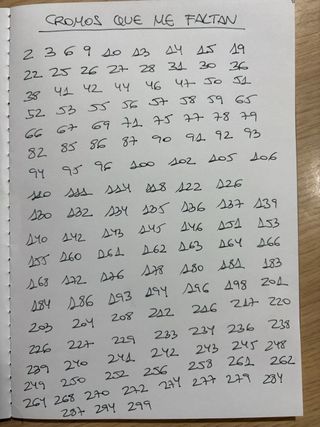 CROMOS QUE ME FALTAN
2 3 6 9 10 13 14 15 19
22 25 26 27 28 31 30 36
38 41 42 44 46 47 50 51
52 53 55 56 57 58 59 65
66 67 69 71 75 77 78 79
82 85 86 87 90 91 92 93
94 95 96 100 102 105 106
110 111 114 118 122 126
130 132 134 135 136 137 139
140 142 143 145 146 151 153
155 160 161 162 163 164 166
168 172 176 178 180 181 183
184 186 193 194 196 198 201
203 204 208 212 216 217 220
226 227 229 233 234 236 238
239 240 241 242 243 245 248
249 250 252 256 258 261 262
264 268 270 272 274 277 279 284
287 294 299